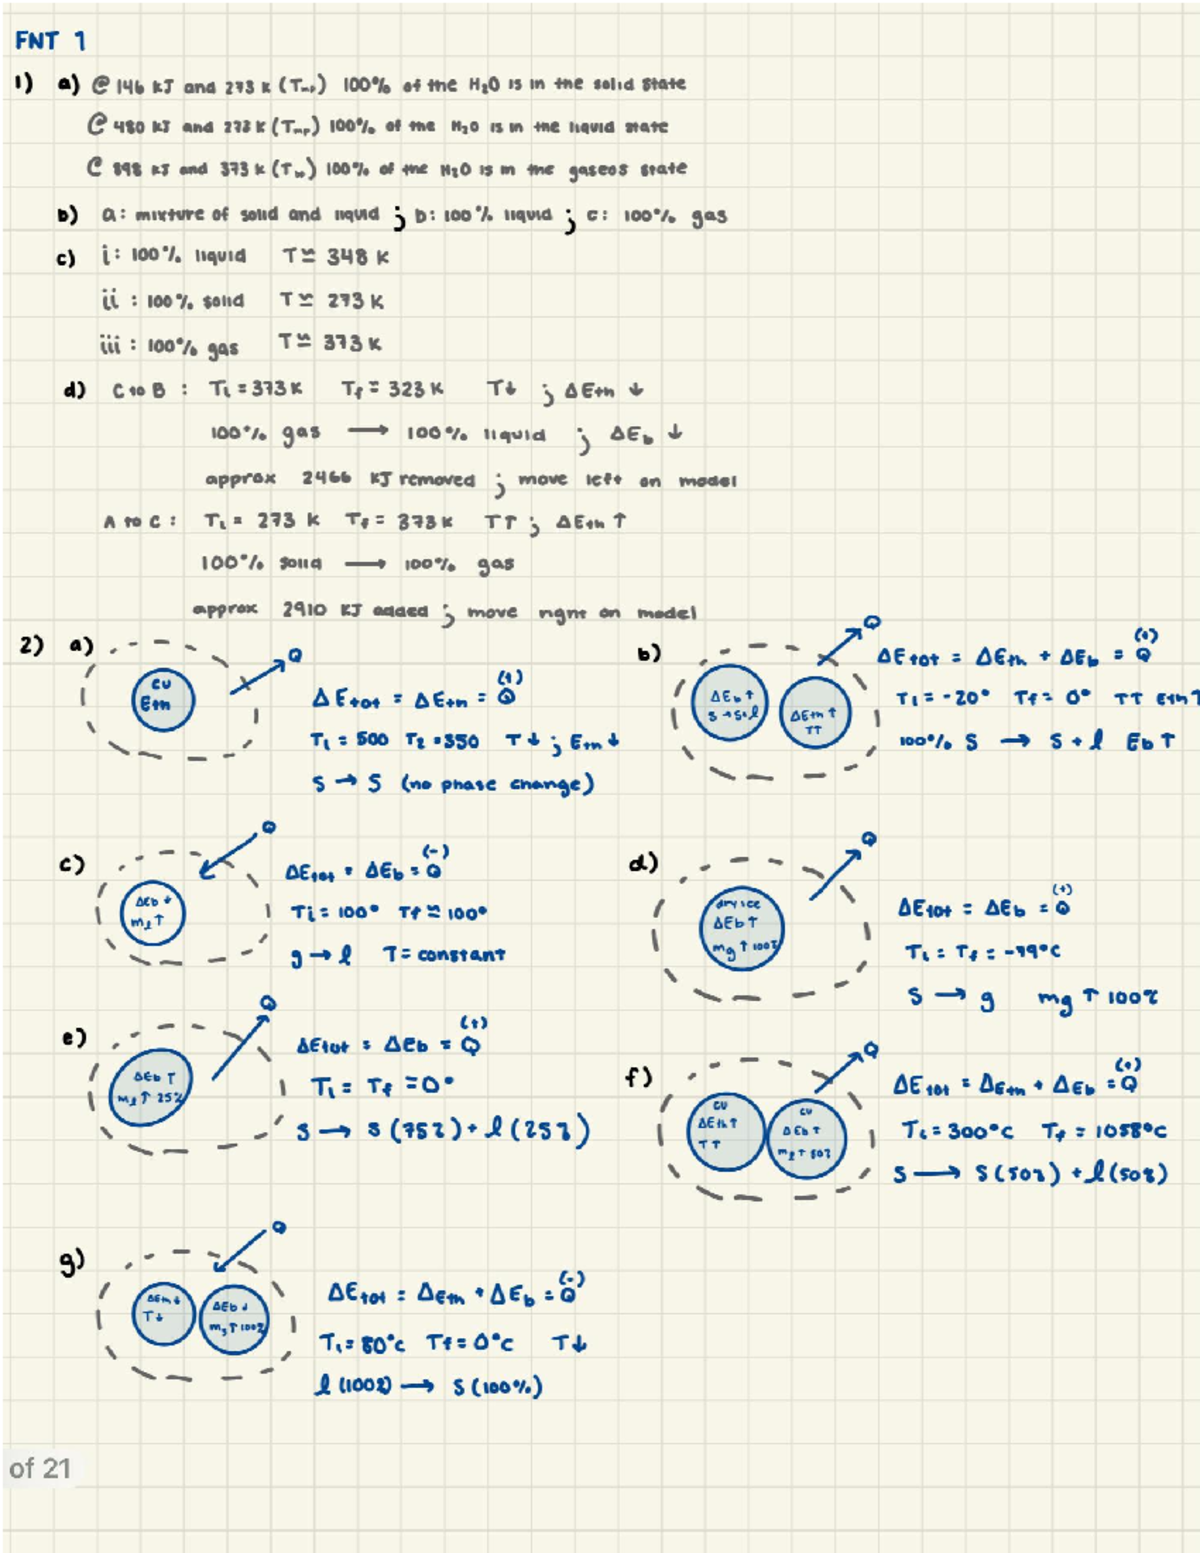 FNT 1
1) a) @ 146 KJ and 273 K (Tmp) 100% of the H2O is in the solid state
@ 480 KJ and 273 K (Tmp) 100% of the H2O is in the liquid state
@ 898 KJ and 373 K (T) 100% of the H2O is in the gaseos state
b) a: mixture of solid and liquid ; b: 100% liquid ; c: 100% gas
c) i: 100% liquid T≃ 348 K
ii: 100% solid T≃ 273 K
iii: 100% gas T≃ 373 K
d) C to B : Ti = 373 K Tf = 323 K T↓ ; ΔEth ↓
100% gas → 100% liquid ; ΔEb ↓
approx 2466 KJ removed ; move left on model
A to C : Ti = 273 K Tf = 373 K T↑ ; ΔEth ↑
100% solid → 100% gas
approx 2910 KJ added ; move right on model
2) a)
Q
CU
Eth
(+)
ΔEtot = ΔEth = Q
T1 = 500 T2 = 350 T↓ ; Eth ↓
S → S (no phase change)
b)
Q
ΔEb↑
S→S+l
ΔEth↑
T↑
(+)
ΔEtot = ΔEth + ΔEb = Q
Ti = -20° Tf = 0° T↑ Eth↑
100% S → S + l Eb↑
c)
Q
ΔEb↓
ml↑
(-)
ΔEtot = ΔEb = Q
Ti = 100° Tf ≃ 100°
g → l T = constant
d)
Q
dry ice
ΔEb↑
mg↑100%
(+)
ΔEtot = ΔEb = Q
Ti = Tf = -79°C
S → g mg ↑ 100%
e)
Q
ΔEb ↑
ml↑ 25%
(+)
ΔEtot = ΔEb = Q
Ti = Tf = 0°
S → S (75%) + l (25%)
f)
Q
CU
ΔEth↑
T↑
CU
ΔEb↑
ml↑50%
(+)
ΔEtot = ΔEth + ΔEb = Q
Ti = 300°C Tf = 1058°C
S → S (50%) + l (50%)
g)
Q
ΔEth↓
T↓
ΔEb↓
ms↑100%
(-)
ΔEtot = ΔEth + ΔEb = Q
Ti = 80°C Tf = 0°C T↓
l (100%) → S (100%)
of 21